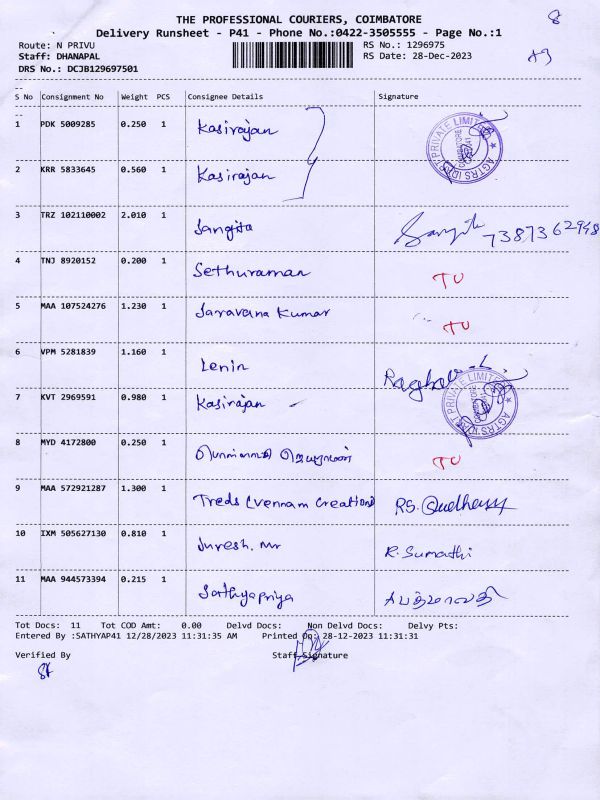 8
THE PROFESSIONAL COURIERS, COIMBATORE
Delivery Runsheet - P41 - Phone No.:0422-3505555 - Page No.:1
Route: N PRIVU RS No.: 1296975
Staff: DHANAPAL RS Date: 28-Dec-2023
DRS No.: DCJB129697501
--
S No Consignment No Weight PCS Consignee Details Signature
--
1 PDK 5009285 0.250 1 Kasirajan
2 KRR 5833645 0.560 1 Kasirajan
3 TRZ 102110002 2.010 1 Sangita 7387362948
4 TNJ 8920152 0.200 1 Sethuraman TU
5 MAA 107524276 1.230 1 Saravana Kumar TU
6 VPM 5281839 1.160 1 Lenin
7 KVT 2969591 0.980 1 Kasirajan
8 MYD 4172800 0.250 1 TU
9 MAA 572921287 1.300 1 Treds (Vennam Creation) RS.
10 IXM 505627130 0.810 1 Suresh. Mr R. Sumathi
11 MAA 944573394 0.215 1 Sathyapriya
Tot Docs: 11 Tot COD Amt: 0.00 Delvd Docs: Non Delvd Docs: Delvy Pts:
Entered By :SATHYAP41 12/28/2023 11:31:35 AM Printed On: 28-12-2023 11:31:31
Verified By Staff Signature